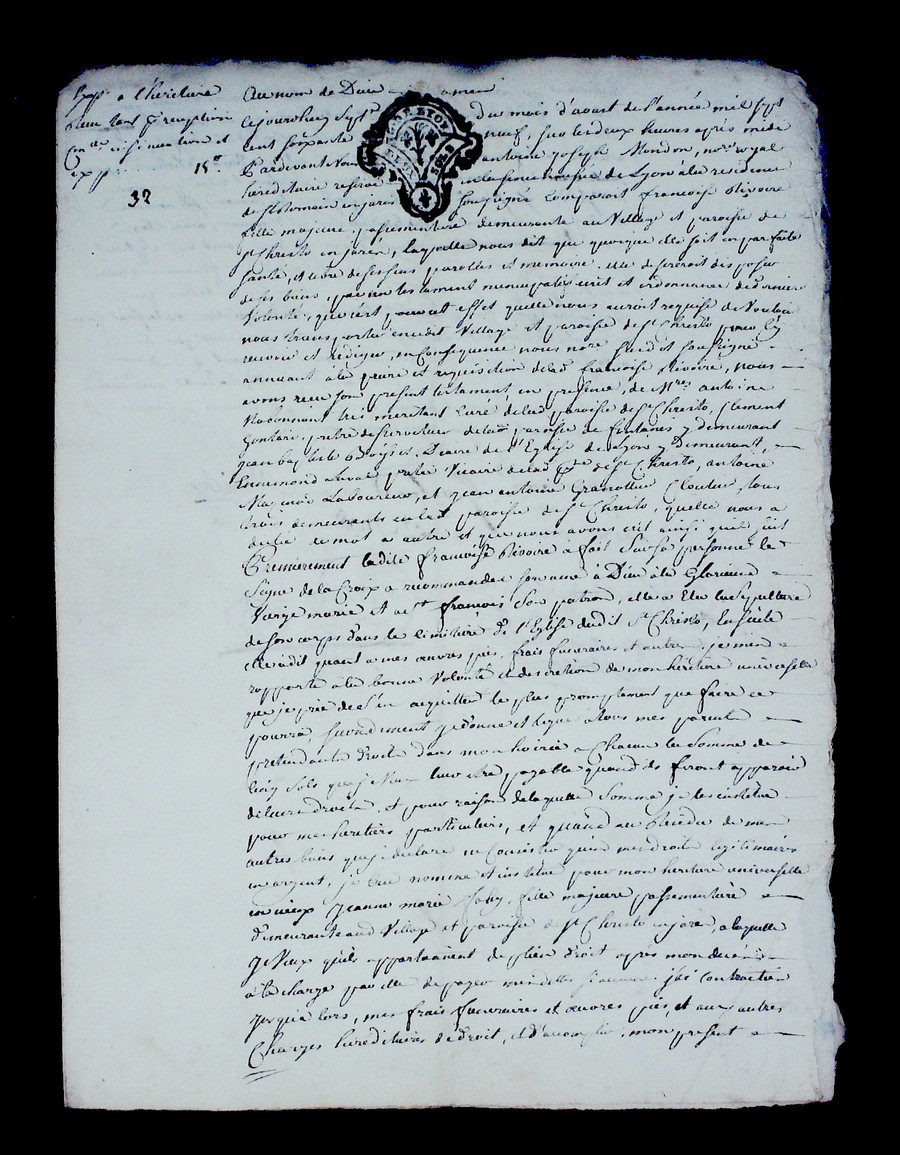 Exp. a l'heritiere
pour tant pr reception
Con.lle insinuation et
exp. 15tt
32
DE LYON
Au nom de Dieu amen
cejourdhuy sept du mois d'aoust de l'année mil sept
cent soixante neuf, sur les deux heures après midi
Pardevant nous antoine joseph Mondon, nore royal
hereditaire reservé en la senechaussée de Lyon à la residence
de St Romain en jarez soussigné comparait francoise Rivoire
fille majeure passementiere demeurante au Village et paroisse de
St Christo en jarez, laquelle nous dit que quoique elle soit en parfaite
santé, et libre de ses sens parolles et memoire. elle desireroit disposer
de ses biens, par un testament nuncupatif ecrit et ordonnance de derniere
Volonté, que c'est pour cet effet quelle nous auroit requise de Vouloir
nous transporter en cedit Village et paroisse de St Christo pour le
recevoir et rediger, en Consequence nous nore susdit soussigné
annuant à la priere et requisition de lad. francoise Rivoire, nous
avons receu son present testament, en presence, de Mres antoine
trés meritant curé de lad paroisse de St Christo, Clement
pretre desserviteur de la paroisse de fontanes y demeurant
jean baptiste Diacre de l'Eglise de Lyon y Demeurant,
Ennemond Laval pretre Vicaire de lad pse de St Christo, antoine
Laboureur, et jean antoine Cloutier, tous
trois demeurants en lad paroisse de St Christo, quelle nous a
dicté de mot a autre et que nous avons ecrit ainsi quil suit
Premierement ladite francoise Rivoire a fait sur sa personne le
signe de la Croix a recommandé son ame à Dieu à la Glorieuse
Vierge marie et a st françois son patron, elle a Elu la sepulture
de son corps dans le cimitiere de l'Eglise dudit St Christo, Ensuite
elle a dit quant a mes œuvres pies, frais funeraires et autres. je m'en
rapporte à la bonne Volonté et discretion de mon heritiere universelle
que je prie de s'en acquitter le plus promptement que faire ce
pourra, secondement je donne et legue a tous mes parents
pretendants droits dans mon hoirie a chacun la somme de
Cinq sols que je Veux leur etre payable quand ils feront apparoir
de leurs droits, et pour raison de laquelle somme je les institue
pour mes heritiers particuliers, et quand au Residu de mes
autres biens que je declare ne consister qu'en mes droits legitimaires
en argent, je Crée nomme et institue pour mon heritiere universelle
jeanne marie fille majeure passementiere
demeurante aud Village et paroisse de St Christo en jarez, a laquelle
je Veux quils appartiennent de plein droit apres mon decés
à la charge par elle de payer mes dettes si aucunes j'ai contractées
jusqu'a lors, mes frais funeraires et œuvres pies, et aux autres
Charges hereditaires de droit, et d'accomplir mon present